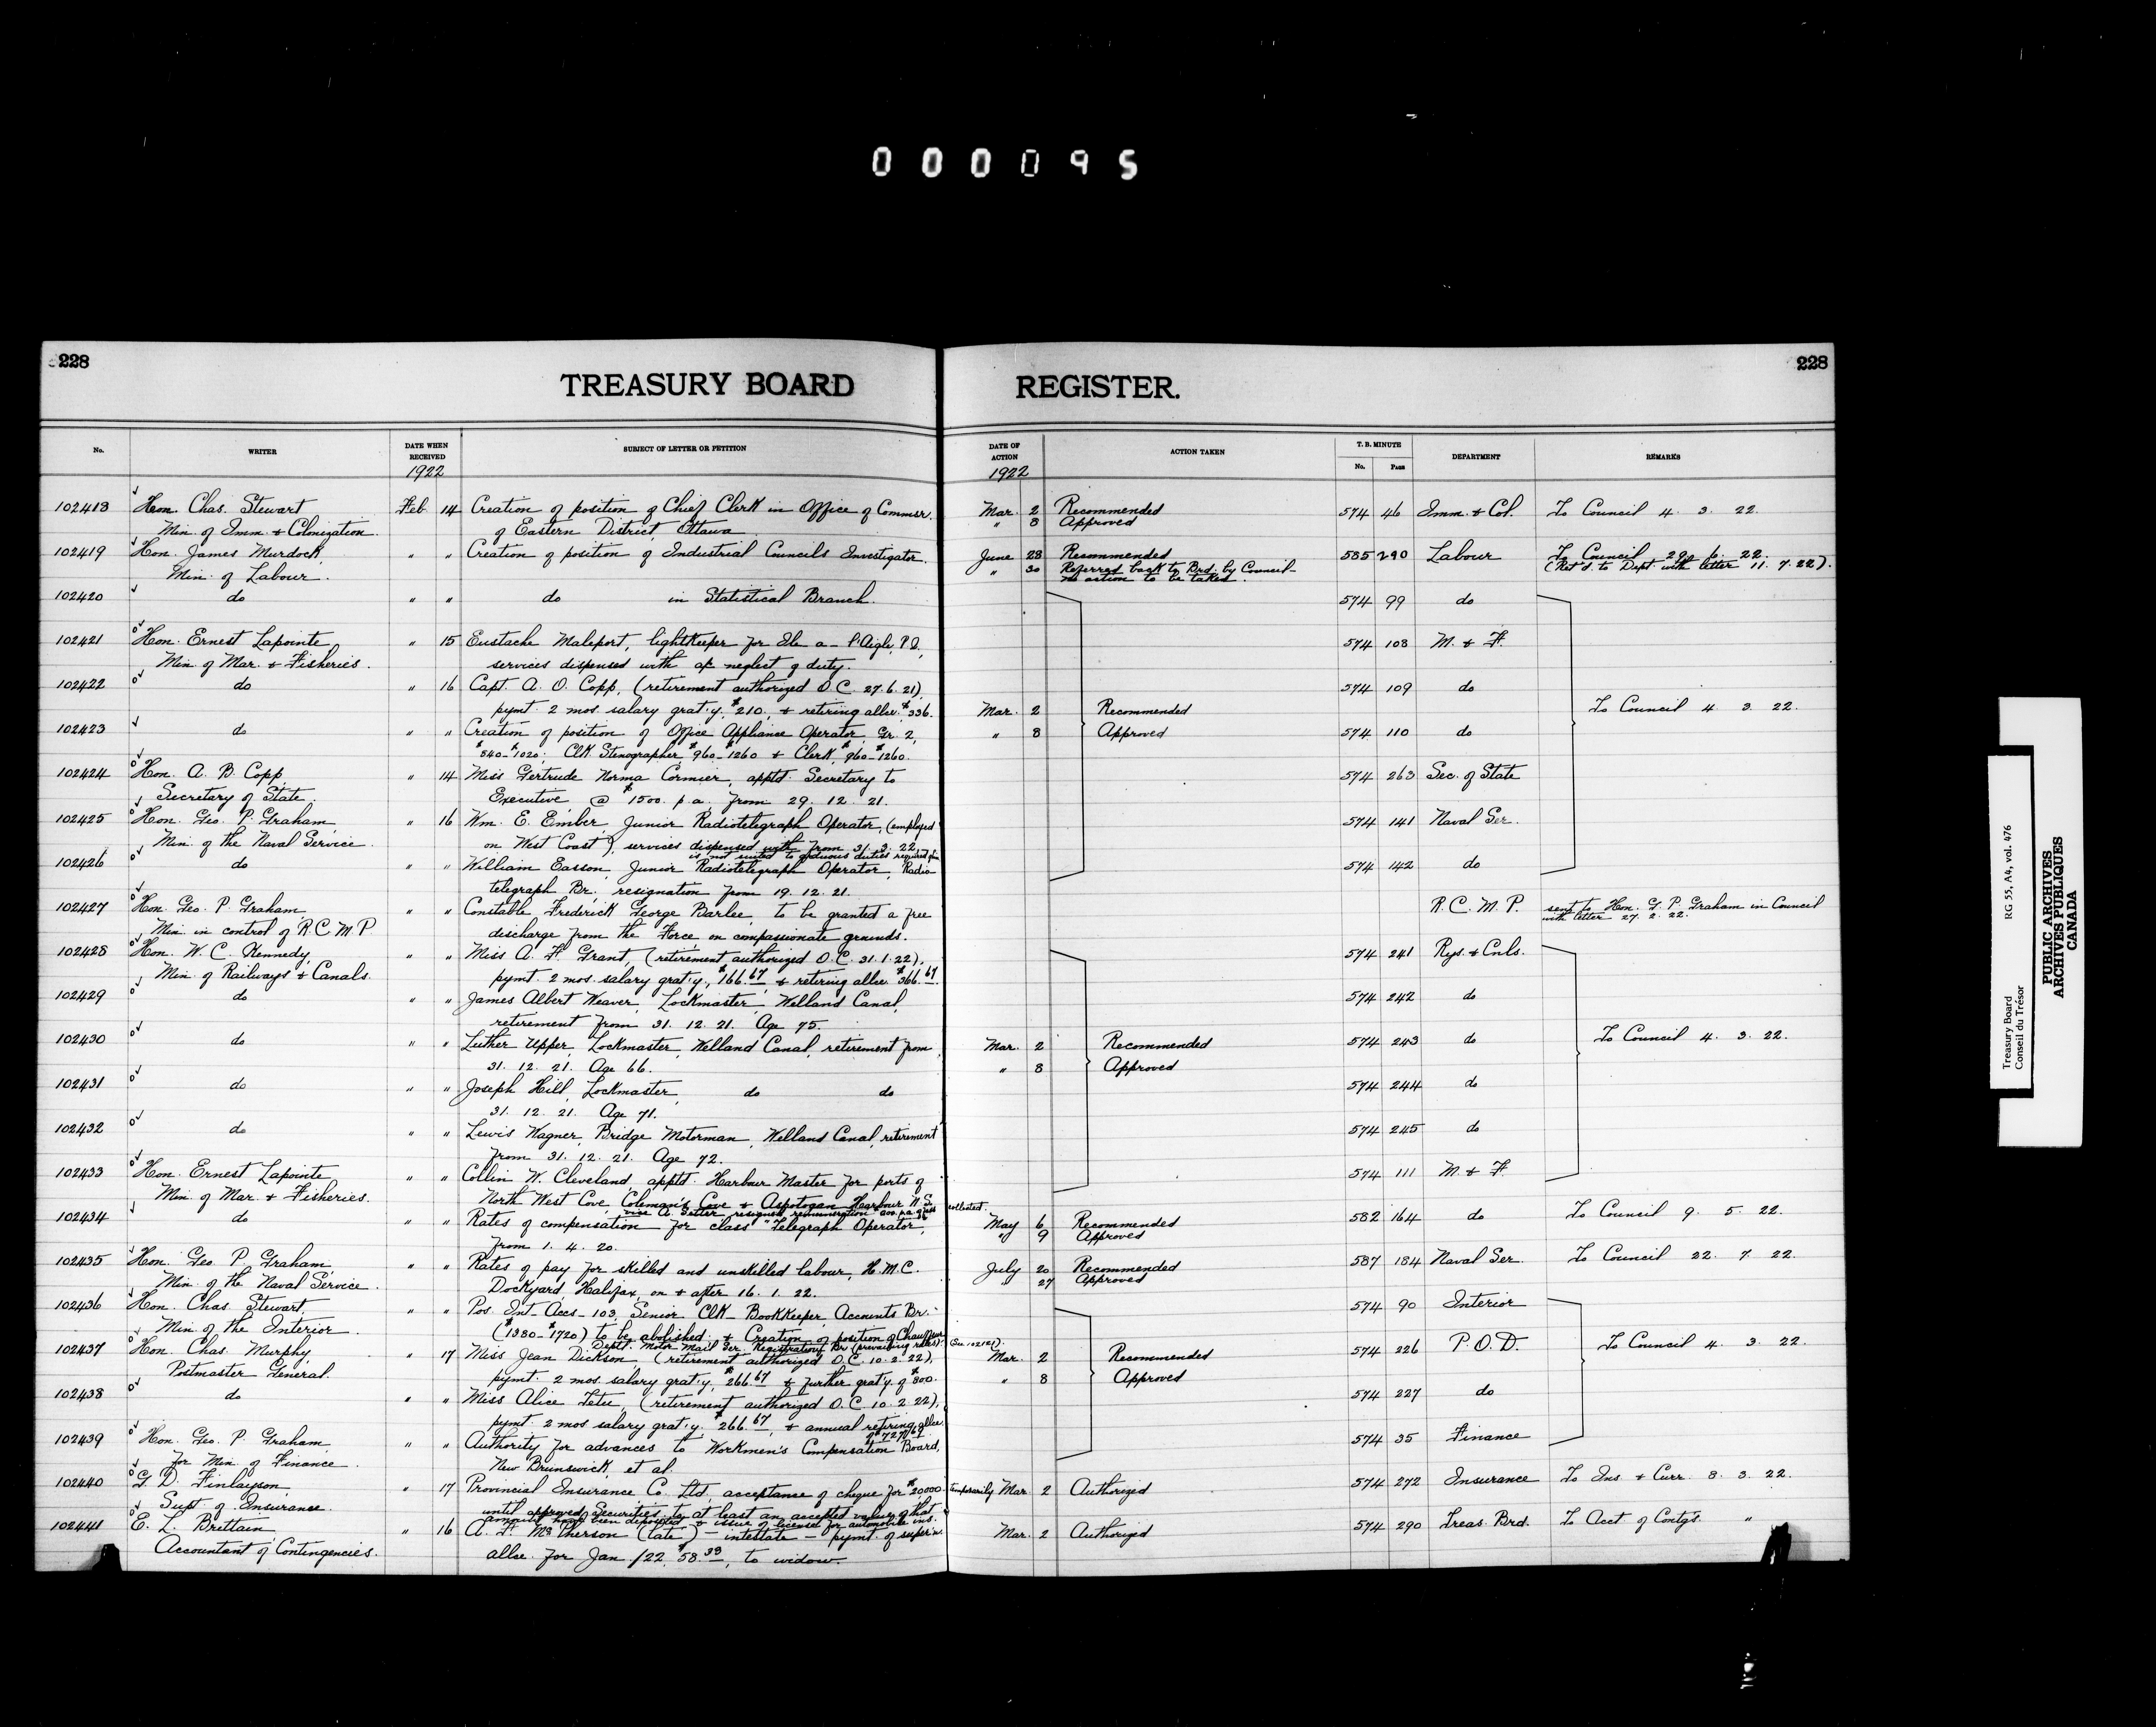 000095
228
228
TREASURY BOARD REGISTER.
No. WRITER DATE WHEN RECEIVED SUBJECT OF LETTER OR PETITION DATE OF ACTION ACTION TAKEN T. B. MINUTE DEPARTMENT REMARKS
No. PAGE
1922 1922
102418 Hon. Chas. Stewart Feb. 14 Creation of position of Chief Clerk in Office of Commsr. Mar. 2 Recommended 574 46 Imm. & Col. To Council 4. 3. 22.
Min. of Imm. & Colonization. of Eastern District, Ottawa " 8 Approved
102419 Hon. James Murdock, " " Creation of position of Industrial Councils Investigator. June 28 Recommended 585 290 Labour To Council 29. 6. 22.
Min. of Labour. " 30 Referred back to Brd. by Council - (Ret'd. to Dept. with letter 11. 7. 22).
no action to be taken.
102420 do " " do in Statistical Branch. 574 99 do
102421 Hon. Ernest Lapointe " 15 Eustache Maleport, lightkeeper for Ile a - l'Aigle, P.Q., 574 108 M. & F.
Min. of Mar. & Fisheries. services dispensed with a/c neglect of duty.
102422 do " 16 Capt. A. O. Copp, (retirement authorized O.C. 27.6.21), 574 109 do
pymt. 2 mos. salary grat'y. $210., & retiring allce. $336. Mar. 2 Recommended To Council 4. 3. 22.
102423 do " " Creation of position of Office Appliance Operator, Gr. 2, " 8 Approved 574 110 do
$540-$1020; Clk Stenographer $960-$1260 & Clerk, $960-$1260.
102424 Hon. A. B. Copp, " 14 Miss Gertrude Norma Cormier, apptd. Secretary to 574 263 Sec. of State
Secretary of State. Executive, @ $1500. p.a. from 29. 12. 21.
102425 Hon. Geo. P. Graham " 16 Wm. E. Ember, Junior Radiotelegraph Operator, (employed 574 141 Naval Ser.
Min. of the Naval Service. on West Coast), services dispensed with from 31. 3. 22
is not suited to arduous duties required of him
102426 do " " William Easson, Junior Radiotelegraph Operator, Radio- 574 142 do
telegraph Br., resignation from 19. 12. 21.
102427 Hon. Geo. P. Graham " " Constable Frederick George Barlee, to be granted a free R.C.M.P. sent to Hon. G. P. Graham in Council
Min. in control of R.C.M.P. discharge from the Force on compassionate grounds. with letter 27. 2. 22.
102428 Hon. W. C. Kennedy, " " Miss A. F. Grant, (retirement authorized O.C. 31.1.22), 574 241 Rys. & Cnls.
Min. of Railways & Canals. pymt. 2 mos. salary grat'y., $166.67 & retiring allce. $366.67.
102429 do " " James Albert Weaver, Lockmaster, Welland Canal, 574 242 do
retirement from 31. 12. 21. Age 75.
102430 do " " Luther Upper, Lockmaster, Welland Canal, retirement from Mar. 2 Recommended 574 243 do To Council 4. 3. 22.
31. 12. 21. Age 66. " 8 Approved
102431 do " " Joseph Hill, Lockmaster, do do 574 244 do
31. 12. 21. Age 71.
102432 do " " Lewis Wagner, Bridge Motorman, Welland Canal, retirement 574 245 do
from 31. 12. 21. Age 72.
102433 Hon. Ernest Lapointe " " Collin W. Cleveland, apptd. Harbour Master for ports of 574 111 M. & F.
Min. of Mar. & Fisheries. North West Cove, Coleman's Cove & Aspotogan Harbour N.S.
vice A. resigned, remuneration p.a. collected.
102434 do " " Rates of compensation for class "Telegraph Operator", May 6 Recommended 582 164 do To Council 9. 5. 22.
from 1. 4. 20. " 9 Approved
102435 Hon. Geo. P. Graham, " " Rates of pay for skilled and unskilled labour, H.M.C. July 20 Recommended 587 184 Naval Ser. To Council 22. 7. 22.
Min. of the Naval Service. Dockyard, Halifax, on & after 16. 1. 22. " 27 Approved
102436 Hon. Chas. Stewart, " " Pos. Int-Accs-103, Senior Clk-BookKeeper, Accounts Br. 574 90 Interior
Min. of the Interior. ($1380-$1720) to be abolished & Creation of position of Chauffeur
Deptl. Motor Mail Ser. Registration Br. (prevailing rates). (See 102121).
102437 Hon. Chas. Murphy, " 17 Miss Jean Dickson, (retirement authorized O.C. 10.2.22), Mar. 2 Recommended 574 226 P.O.D. To Council 4. 3. 22.
Postmaster General. pymt. 2 mos. salary grat'y. $266.67 & further grat'y. of $800. " 8 Approved
102438 do " " Miss Alice Tetu, (retirement authorized O.C. 10.2.22), 574 227 do
pymt. 2 mos. salary grat'y. $266.67, & annual retiring allce.
102439 Hon. Geo. P. Graham, " " Authority for advances to Workmen's Compensation Board, 574 35 Finance
for Min. of Finance. New Brunswick, et al.
102440 G. D. Finlayson, " 17 Provincial Insurance Co. Ltd. acceptance of cheque for $20,000 temporarily Mar. 2 Authorized 574 272 Insurance To Ins. & Curr. 8. 3. 22.
Supt. of Insurance. until approved Securities to at least an accepted value of that
amount have been deposited & issue of license for automobile ins.
102441 E. L. Brittain " 16 A. F. McPherson (late) - intestate - pymt. of super'n. Mar. 2 Authorized 574 290 Treas. Brd. To Acct. of Contgs. "
Accountant of Contingencies. allce. for Jan/22, $58.33, to widow.
Treasury Board RG 55, A4, vol. 476
Conseil du Trésor
PUBLIC ARCHIVES
ARCHIVES PUBLIQUES
CANADA